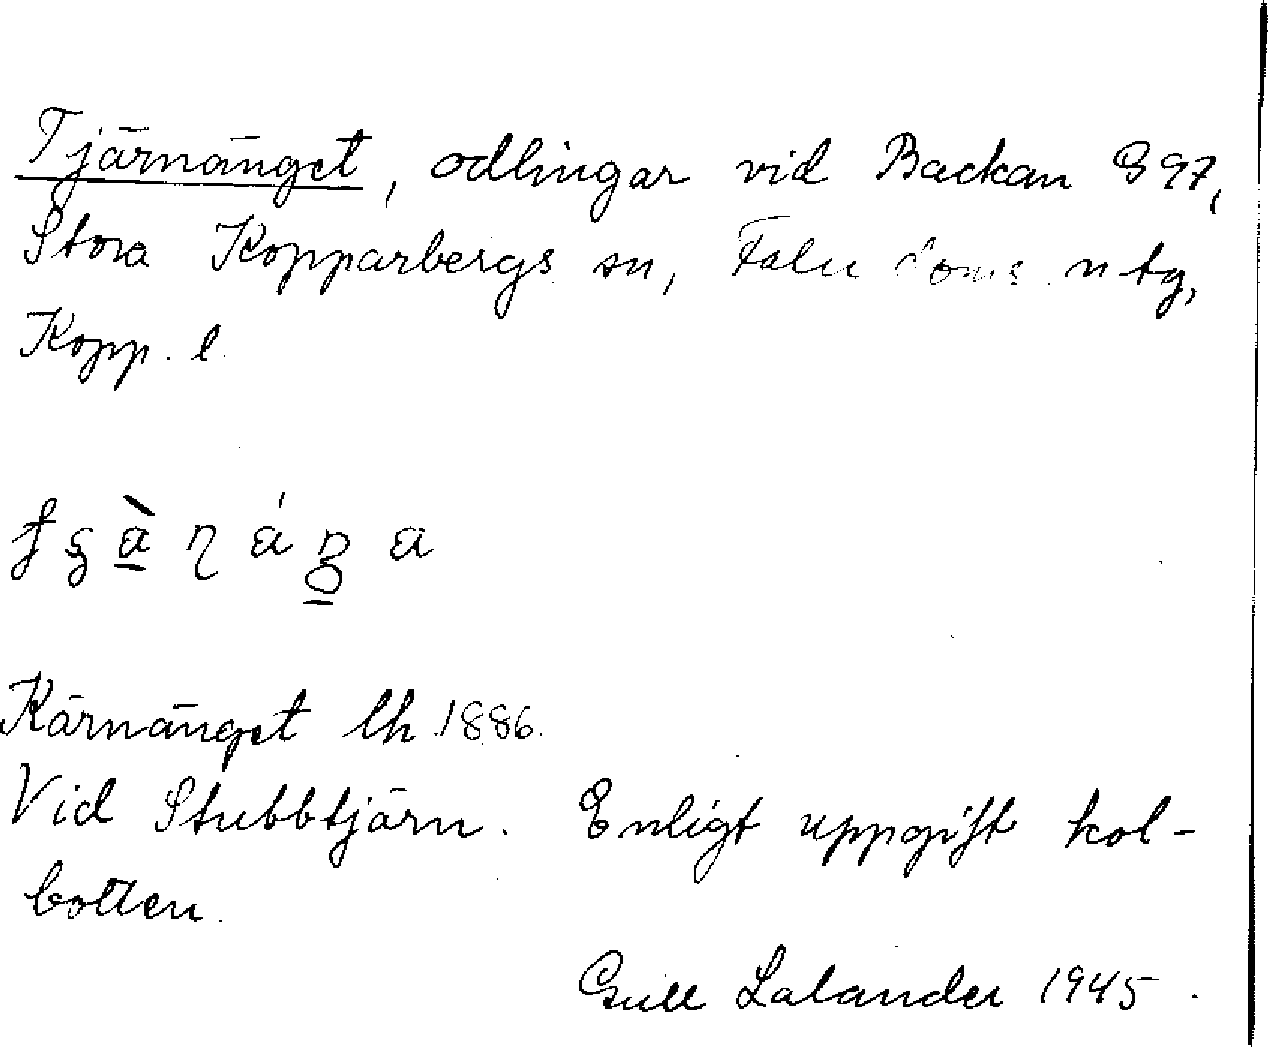 Tjärnänget, odlingar vid Backan G97,
Stora Kopparbergs sn, Falu doms. ntg,
Kopp. l.
Kärnänget lh 1886.
Vid Stubbtjärn. Enligt uppgift kol-
botten.
Gull Lalander 1945.